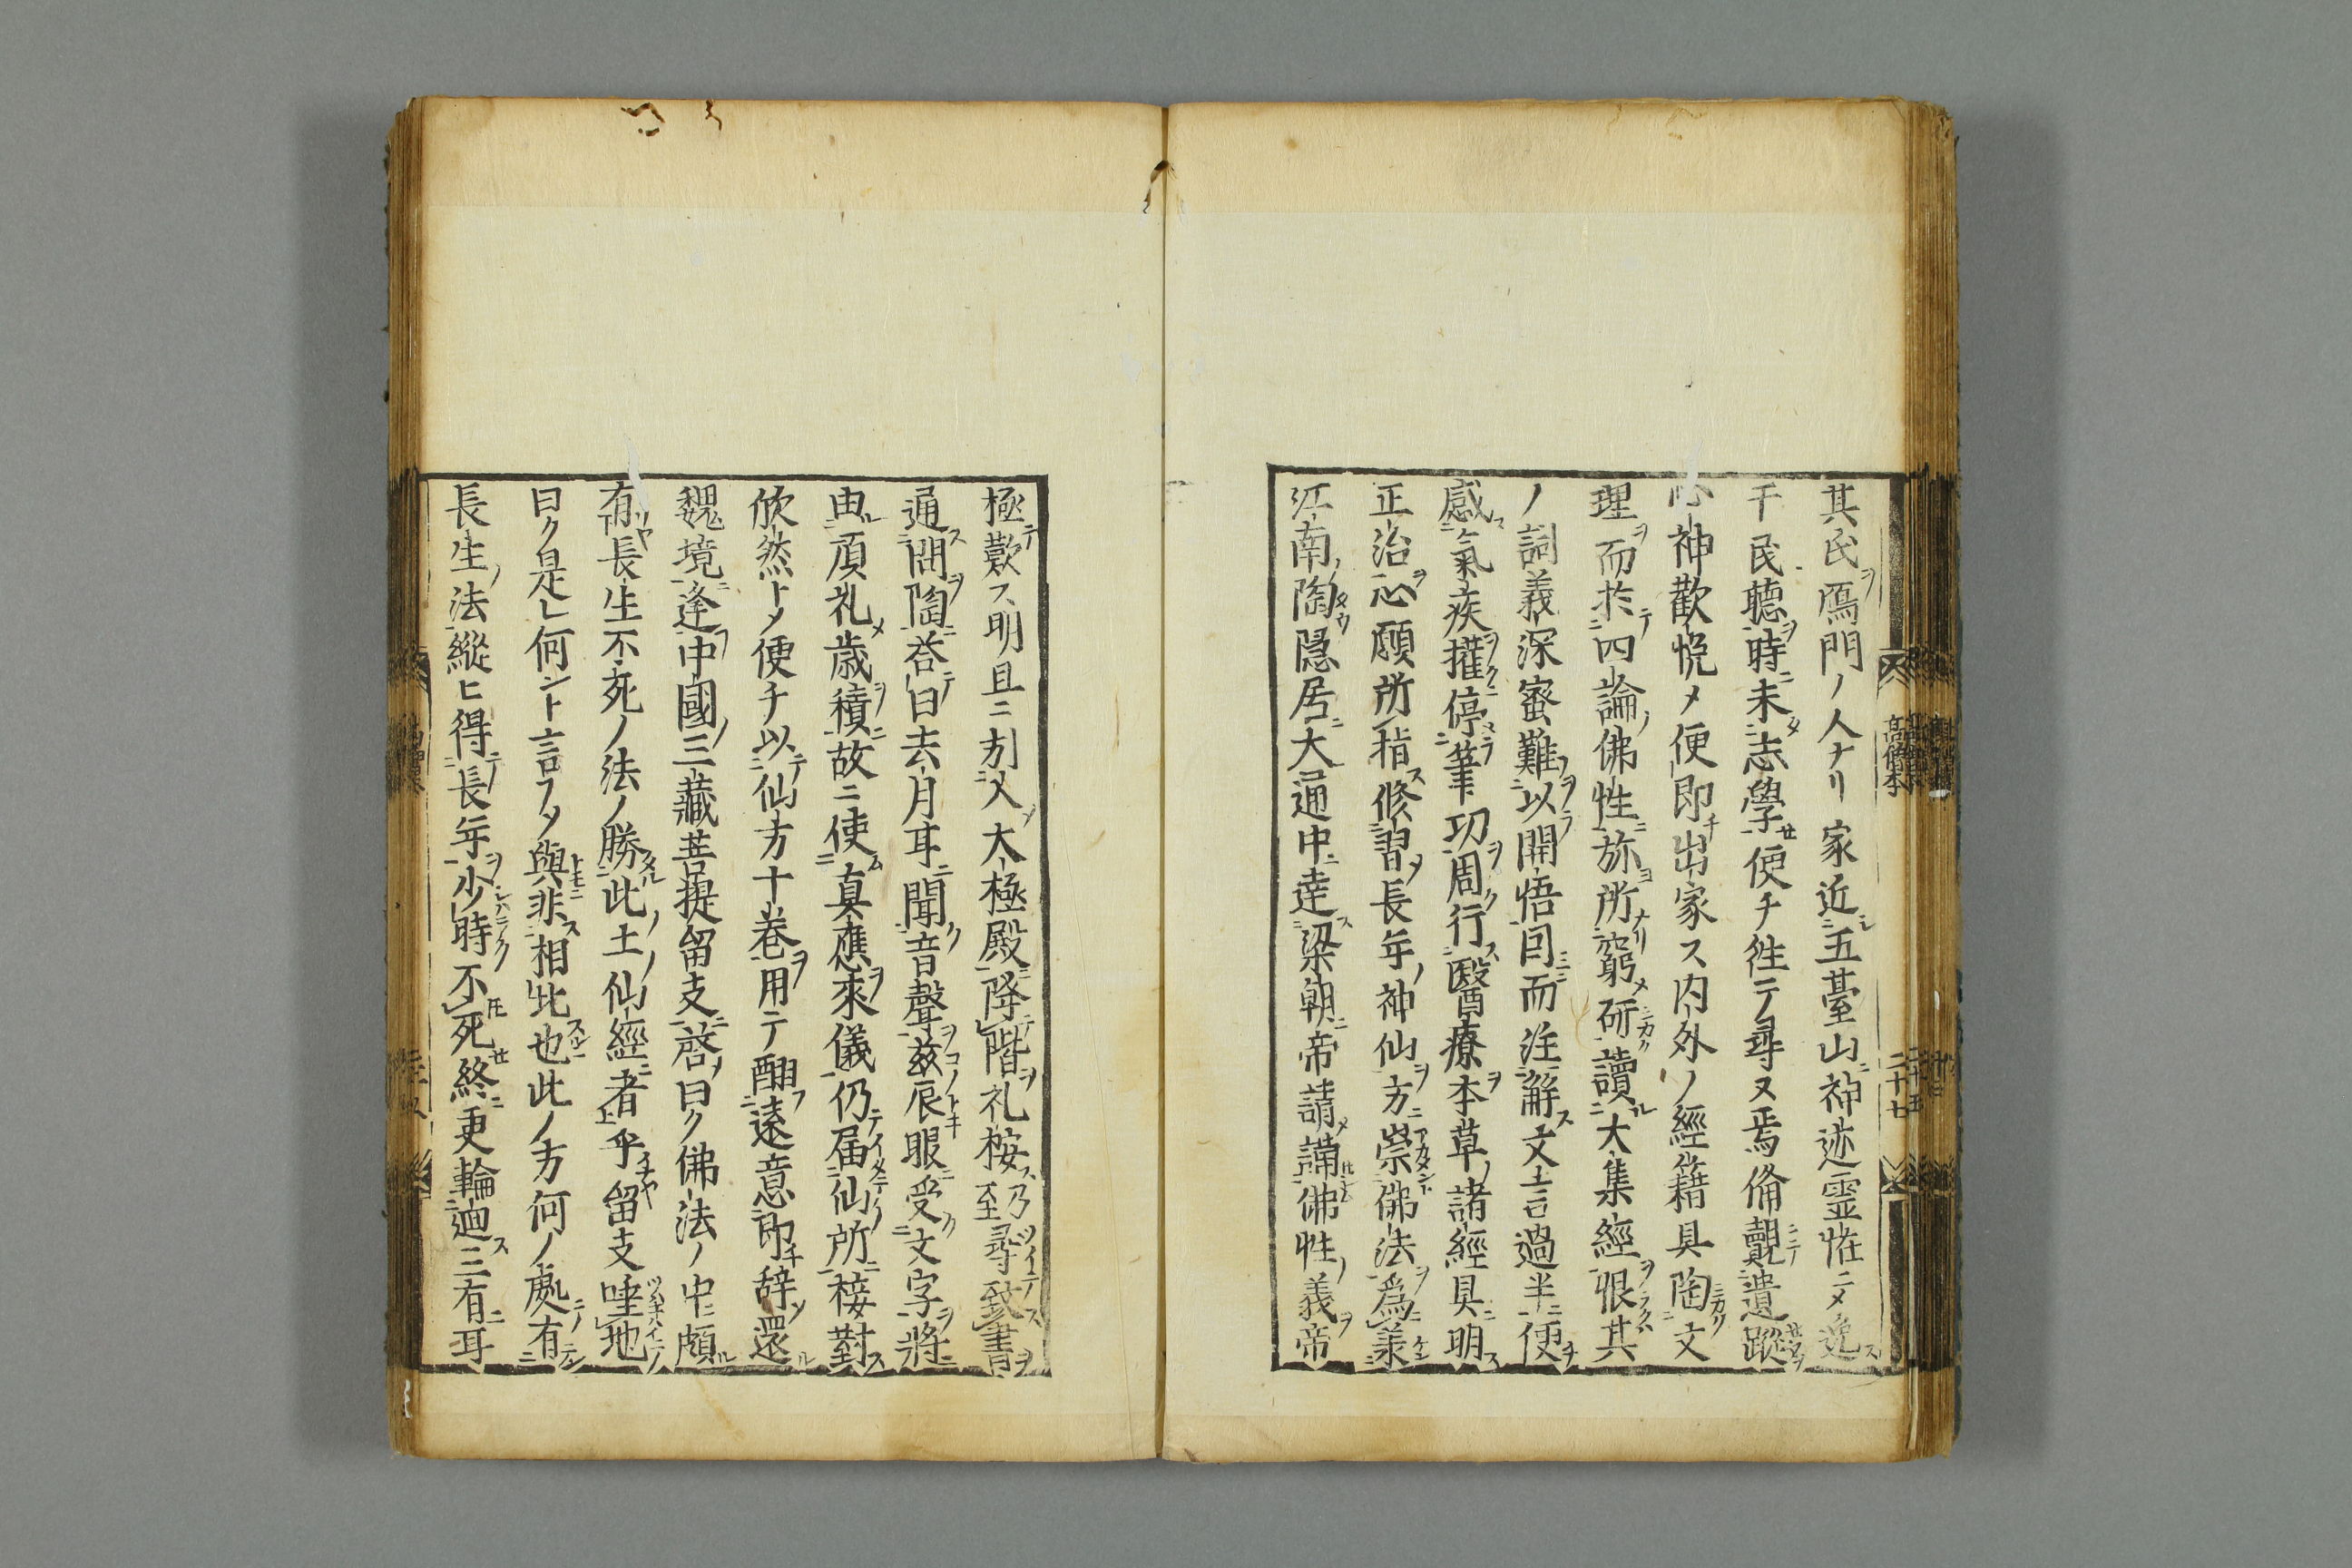 其氏ヲ鴈門ノ人ナリ家近シ五臺山ニ神迹霊恠ニメ逸ス
于民聽ヲ時ニ未タ志學セ便チ徃テ尋ヌ焉備覿ニテ遺蹤ヲ
心神歡悦メ便即チ出家ス内外ノ經籍具陶文
理ヲ而於テ四論ノ佛性ニ弥ヨ所ナリ窮メ研讀ル大集經ヲ恨ラクハ其
ノ詞義深蜜難ヲ以開悟因而注解ス文言過半ニ便チ
感ス氣疾ヲ權停メ筆功ヲ周ク行ス醫療ヲ本草ノ諸經具ニ明ス
正治ヲ心願所指ス修習メ長年ノ神仙ヲ方ニ崇佛法ヲ為ニ業
江南ノ陶隠居ニ大通中ニ達ス梁朝ニ帝請メ講佛性ノ義ヲ帝
高僧本
二十七
極テ歎ス明且ニ別メ入大極殿ニ降テ階ヲ礼按ス至乃尋ツイテ致ス書ヲ
通ス問ヲ陶ニ荅テ曰去月耳ニ聞ク音聲ヲ茲コノ辰トキ眼ニ受ク文字ヲ將ニ
由ル頂礼メ歳積ヲ故ニ使ム真應ヲ來儀仍テ届イタテ仙所ニ接對ス
欣然トメ便チ以テ仙方十巻ヲ用テ酬フ遠意ニ即チ辞ソ還ル
魏境ニ逢フ中國ノ三藏菩提留支ニ啓ソ曰ク佛法ノ中ニ頗ル
有リヤ長生不死ノ法ノ勝タル此ノ土ノ仙經ニ者乎留支唾ツハキハイテ地ニ
曰ク是レ何ント言フタ與トモニ非ス相比スルニ也此ノ方何ノ處ニノ有テン
長生ノ法縱ヒ得テ長年ヲ少シハラク時ノ不トモ死セ終ニ更輪廻ス三有ニ耳